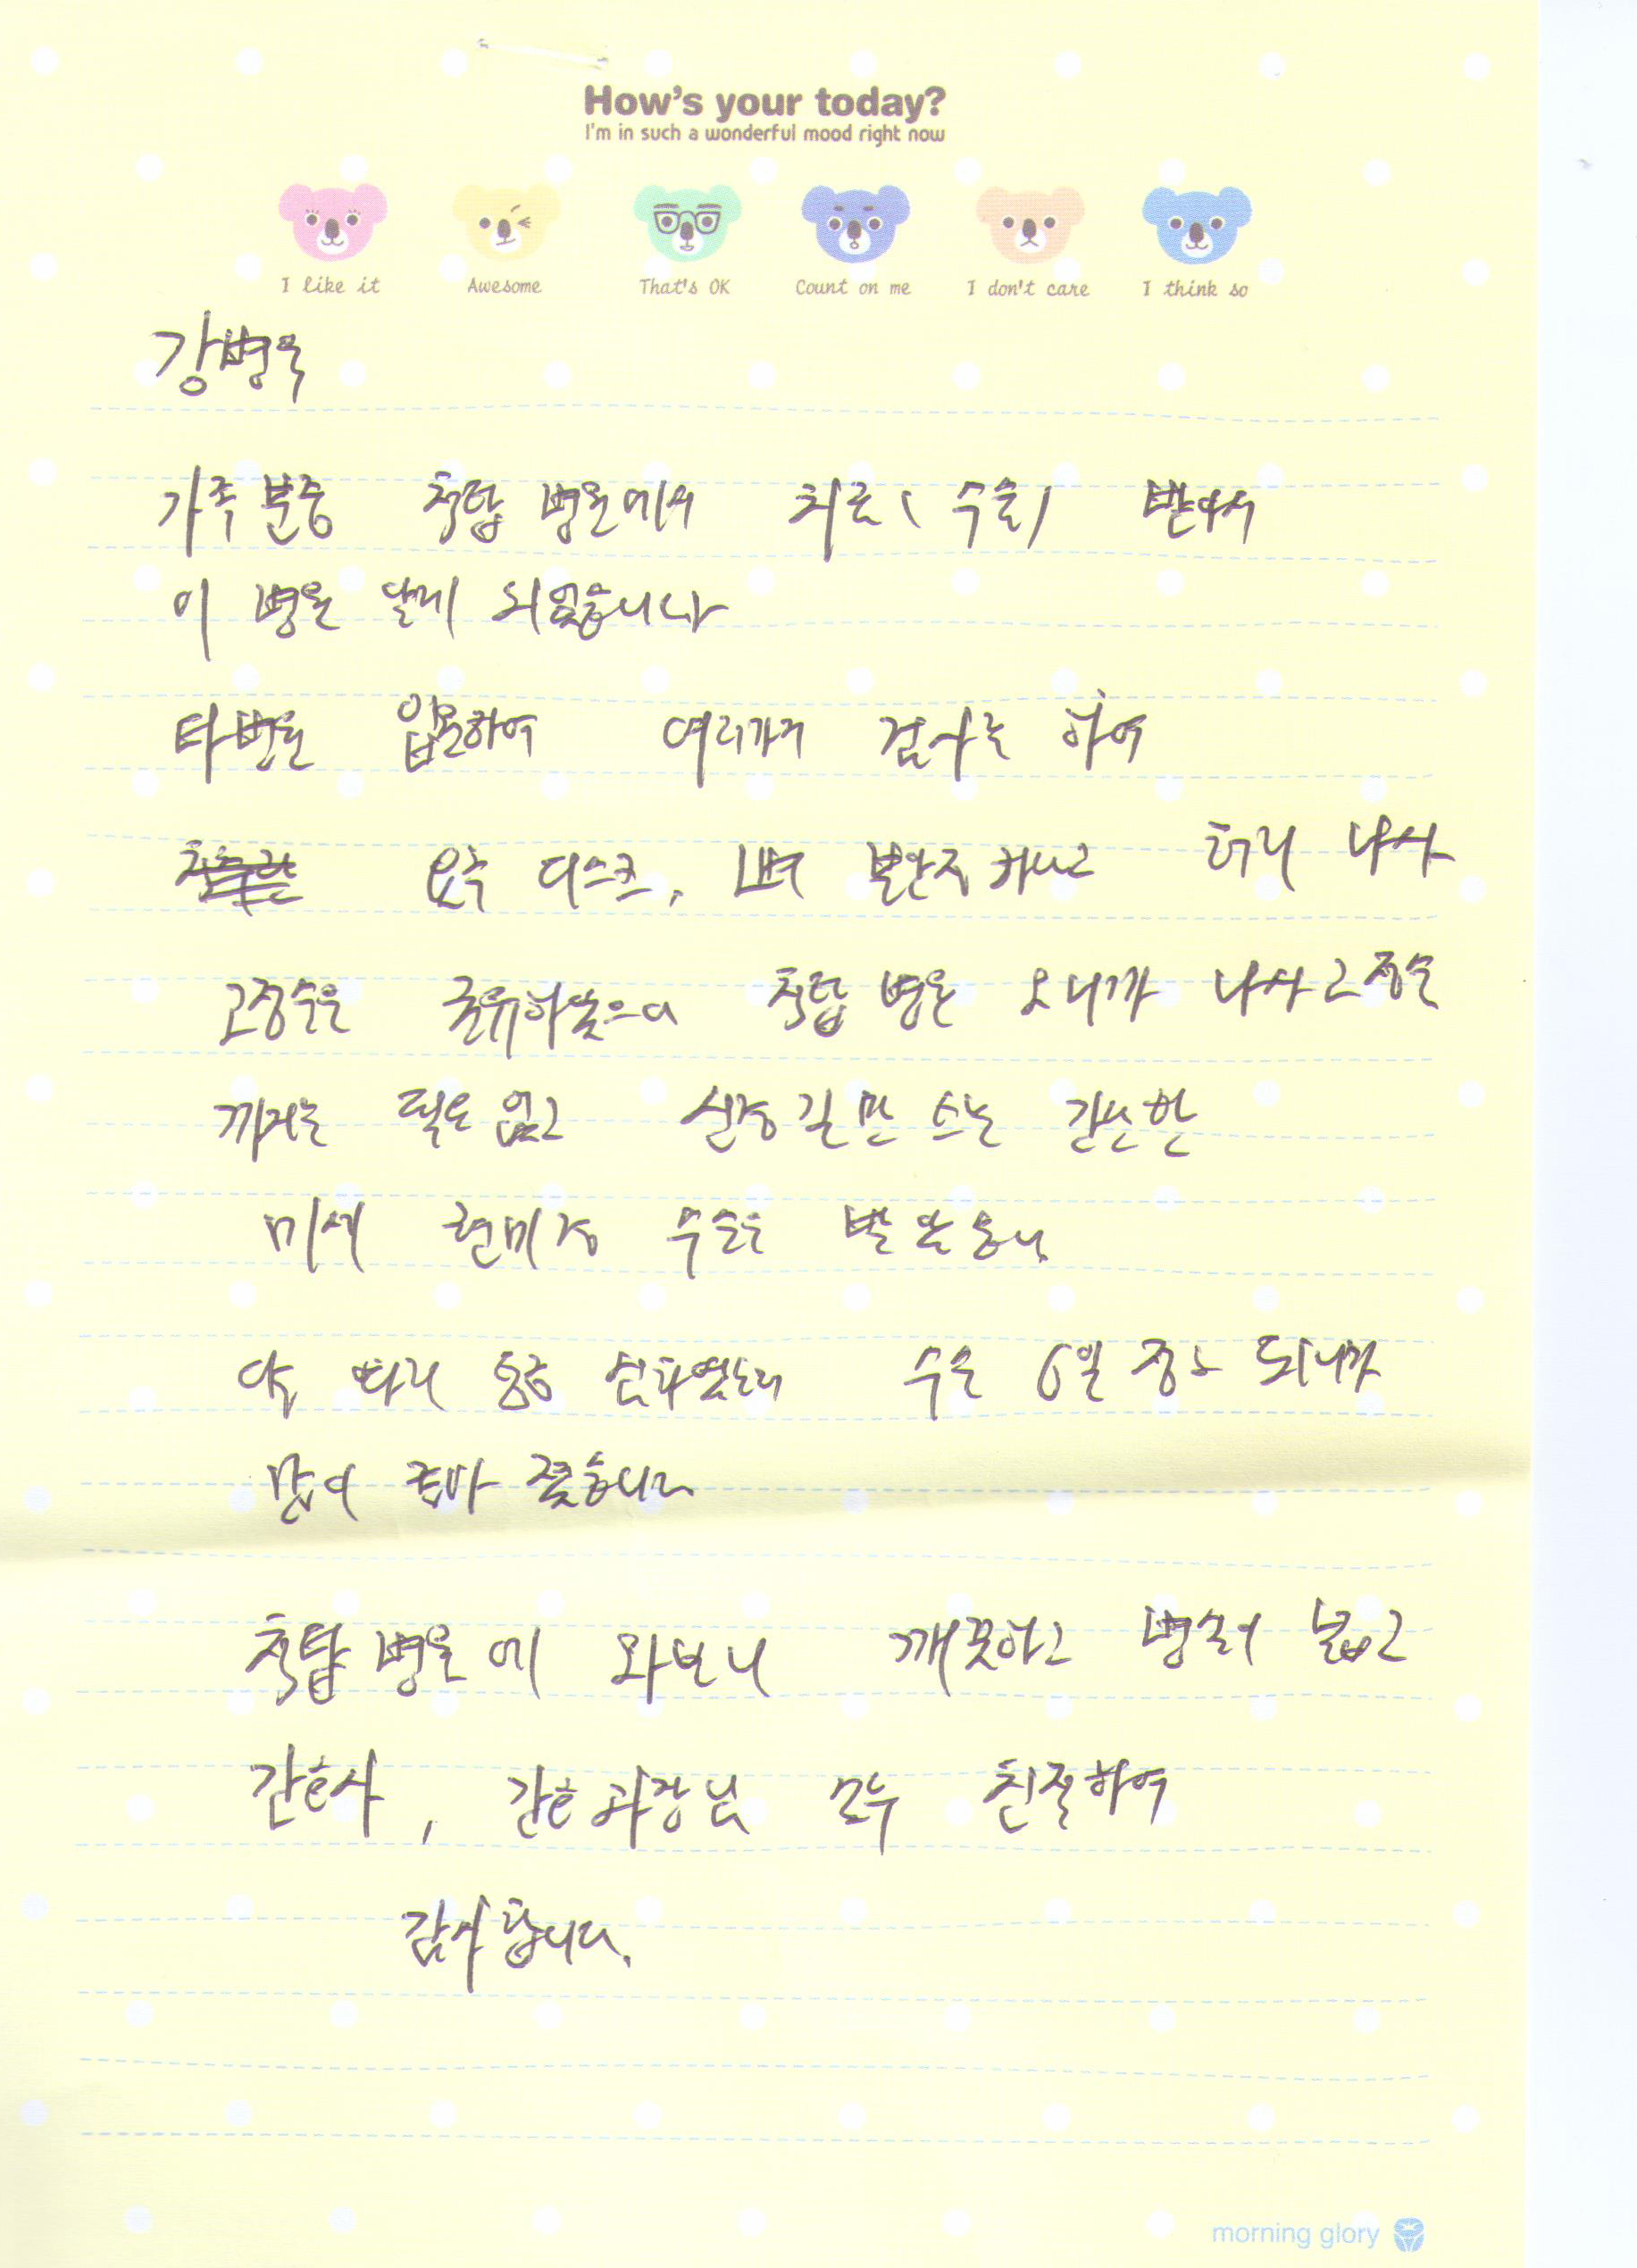 How's your today?
I'm in such a wonderful mood right now
I like it Awesome That's OK Count on me I don't care I think so
강병욱
가족분중 척탑 병원에서 치료(수술) 받아서
이 병원 알게 되었습니다
타병원 입원하여 여러가지 검사는 하여
요추 디스크, 허리 나사
고정술을 척탑 병원 오니까 나사고정은
필요없고 신경길만 간단한
미세 현미경 수술을
다리 통증 수술 6일 정도 되니까
많이
척탑병원에 와보니 깨끗하고 병실이 넓고
간호사, 간호과장님 모두 친절하여
감사합니다.
morning glory